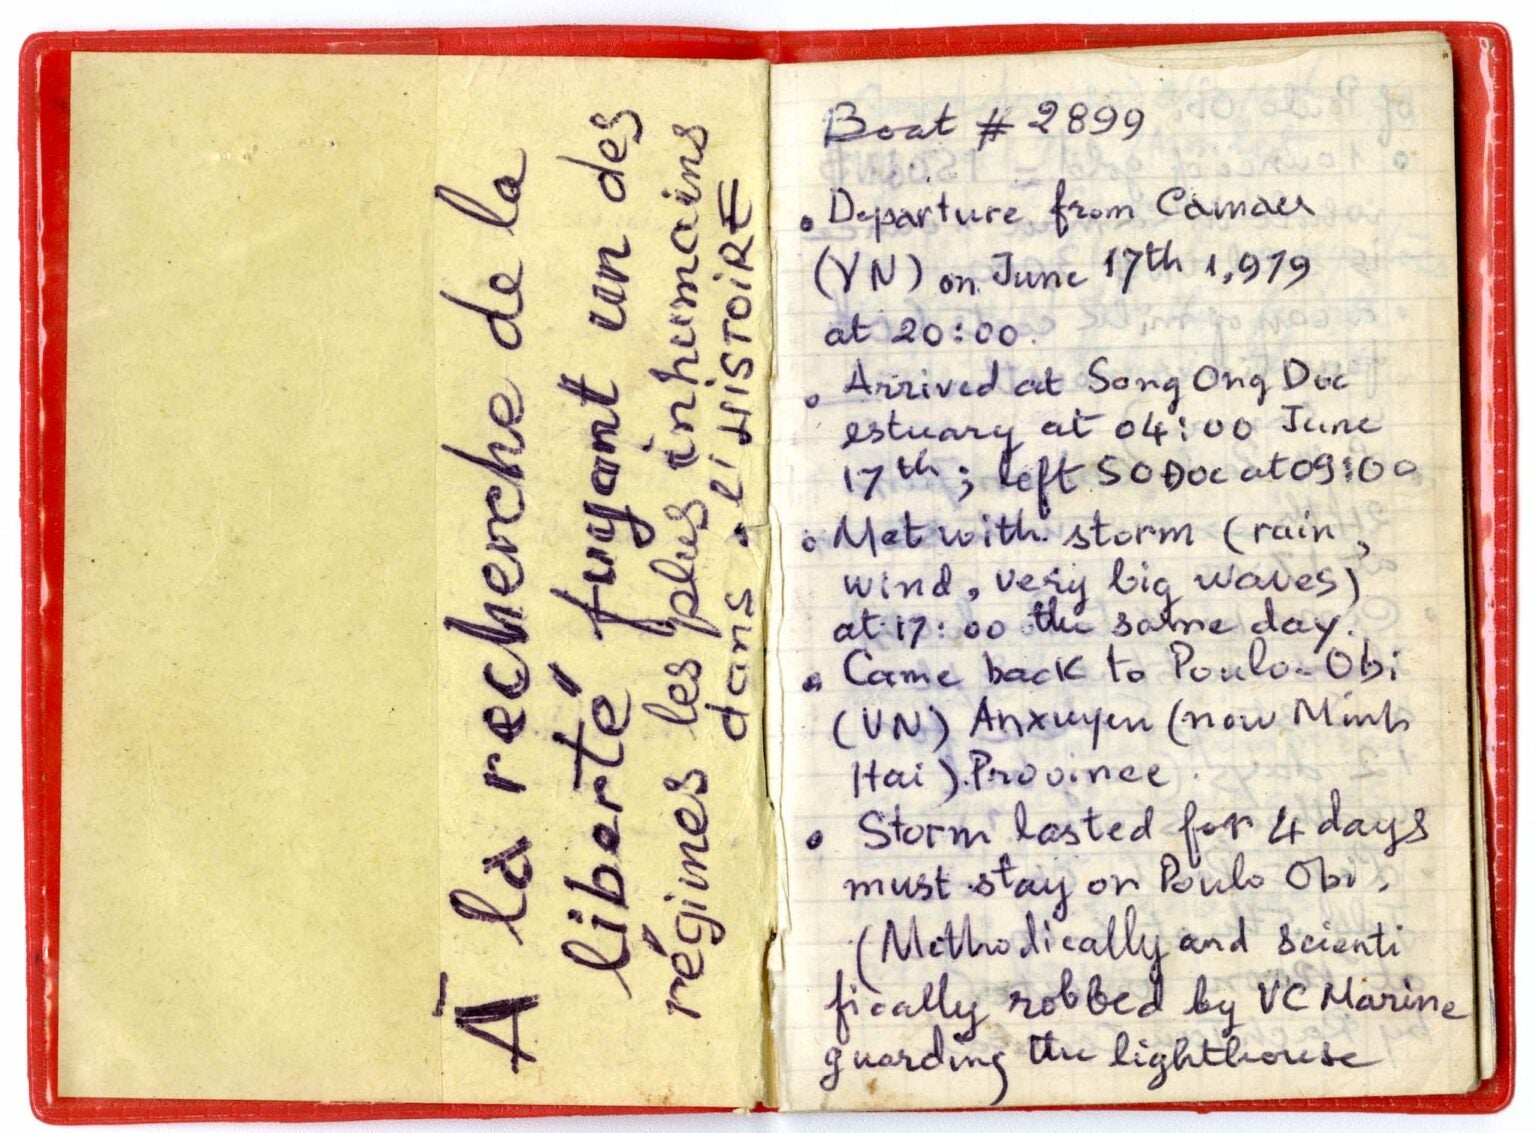 À la recherche de la
liberté fuyant un des
régimes les plus inhumains
dans l'HISTOIRE
Boat # 2899
• Departure from Camau
(VN) on June 17th 1,979
at 20:00.
• Arrived at Song Ong Doc
estuary at 04:00 June
17th; left SO Doc at 09:00
• Met with storm (rain,
wind, very big waves)
at 17:00 the same day.
• Came back to Poulo-Obi
(VN) Anxuyen (now Minh
Hai). Province.
• Storm lasted for 4 days
must stay on Poulo Obi.
(Methodically and scienti
fically robbed by VC Marine
guarding the lighthouse